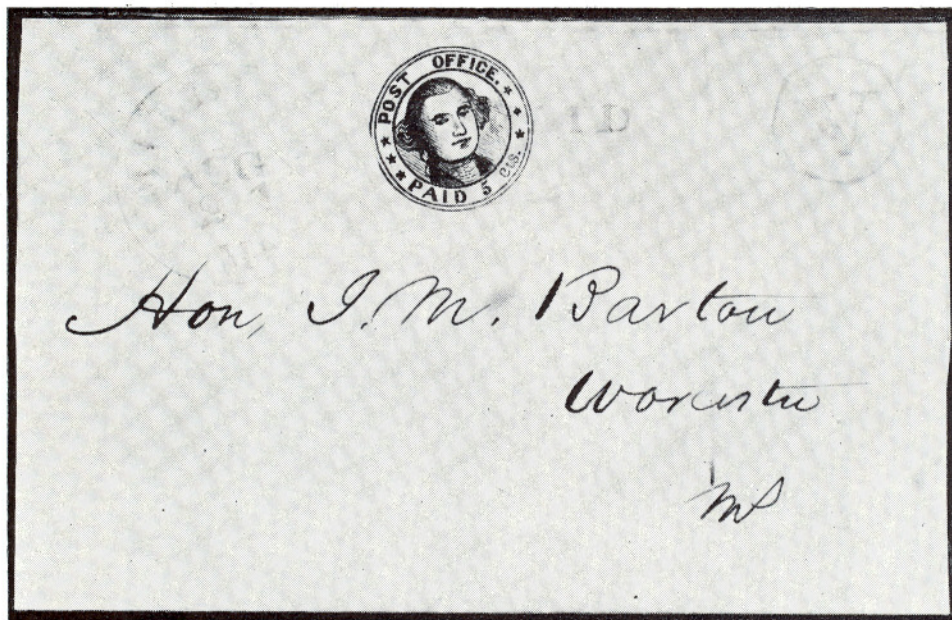 POST OFFICE.
PAID 5 cts.
Hon, I. M. Barton
Worcester
Ms